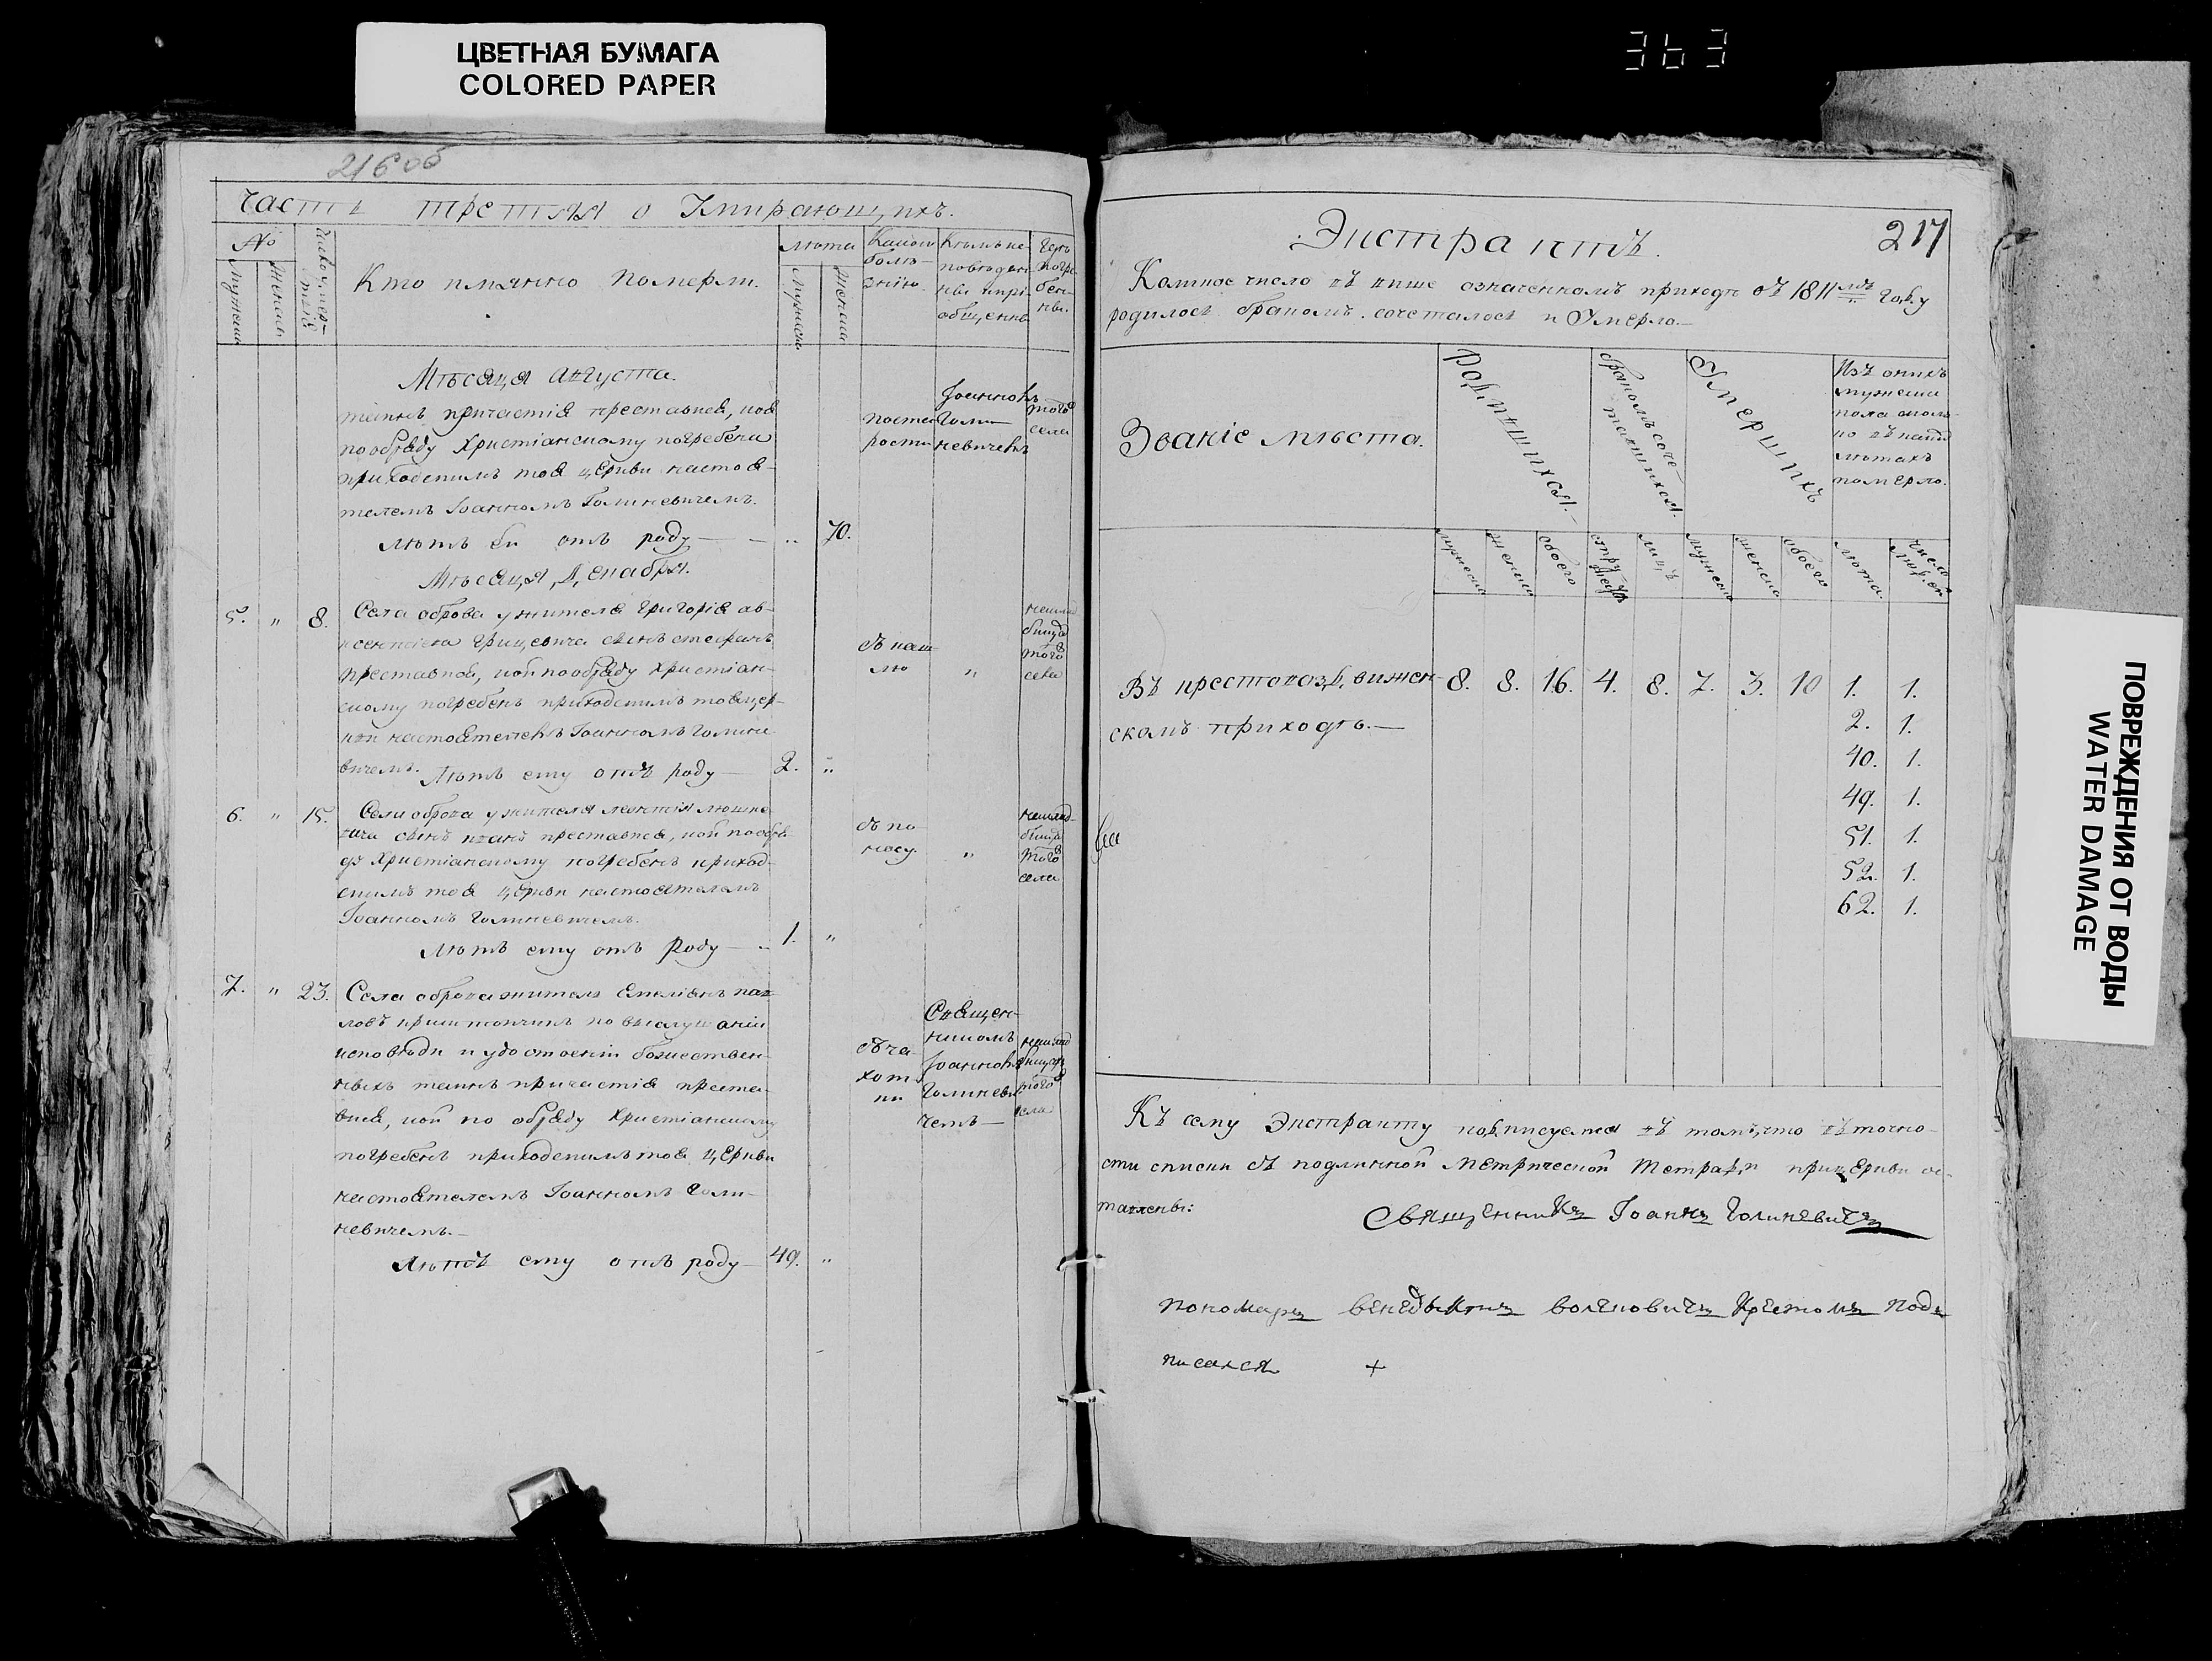 ЦВЕТНАЯ БУМАГА
COLORED PAPER
363
216об
Часть третяя о Умирающихъ.
№
Мужеска
Женска
Число смертей
Кто имянно померли.
Лѣта
Мужеска
Женска
Какою
болѣ-
знію.
Кѣмъ ис-
повѣдан-
ны и прі-
общенны
Гдѣ
погре-
бен-
ны.
Мѣсяца Августа.
таинъ причастія преставися, коя
по обряду Христіанскому погребена
приходскимъ тоя церкви настоя-
телемъ Іоанномъ Голиневичемъ.
Лѣтъ ей отъ роду — 70.
Іоанномъ
Голи-
невичемъ
того
села
Мѣсяца Декабря.
5. „ 8. Села оброва у жителя Григорія ав-
ксентіева Грицевича сынъ стефанъ
преставися, кой по обряду христіан-
скому погребенъ приходскимъ тоя цер-
кви настоятелемъ Іоанномъ Голине
вичемъ. Лѣтъ ему отъ роду — 2. „
съ каш-
лю
„
накла
бищѣ
того
села
6. „ 15. Села оброва у жителя леонтія
сынъ иванъ преставися, кой по обря-
ду Христіанскому погребенъ приход-
скимъ тоя церкви настоятелемъ
Іоанномъ Голиневичемъ.
Лѣтъ ему отъ Роду — 1. „
съ по
носу.
„
наклад-
бищѣ
того
села
7. „ 23. Села оброва житель Емеліянъ пав-
ловъ по выслушаніи
исповѣди и удостоеніи божествен-
ныхъ таинъ причастія преста-
вися, кой по обряду Христіанскому
погребенъ приходскимъ тоя церкви
настоятелемъ Іоанномъ Голи-
невичемъ.—
Лѣтъ ему отъ роду — 49. „
съ чa-
хот-
ки
Священ-
никомъ
Іоанномъ
Голиневи
чемъ —
наклад
бищѣ
того
села
217
Экстрактъ.
Коликое число въ ниже означенномъ приходѣ въ 1811мъ Году
родилось бракомъ сочеталось и Умерло.—
Званіе мѣста.
Родившихся.
бракомъ соче-
тавшихся.
Умершихъ
Изъ онихъ
мужеска
пола сколь-
ко въ какихъ
лѣтахъ
померло.
мужеска
женска
обоего
лицъ
мужеска
женска
обоего
лѣта
число
Въ крестовоздвижен- 8. 8. 16. 4. 8. 7. 3. 10 1. 1.
скомъ приходѣ.— 2. 1.
40. 1.
49. 1.
51. 1.
52. 1.
62. 1.
Къ сему Экстракту подписуемся въ томъ, что въ точно-
сти списки съ подлинной Метрической Тетради при церкви ос-
тавлены:
Священникъ Іоаннъ Голиневичъ
пономаръ венедыктъ воляновичъ Крестомъ подъ
писался +
ПОВРЕЖДЕНИЯ ОТ ВОДЫ
WATER DAMAGE